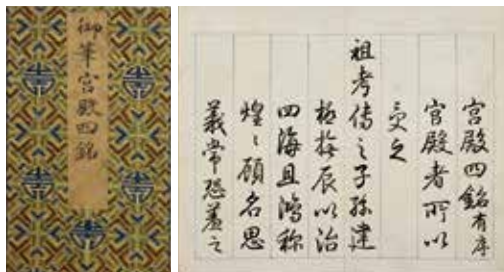 御筆宮殿四銘
宮殿四銘有序
宮殿者所以
受之
祖考傳之子孫建
極撫辰以治
四海且鴻稱
煌〻顧名思
義常恐羞之